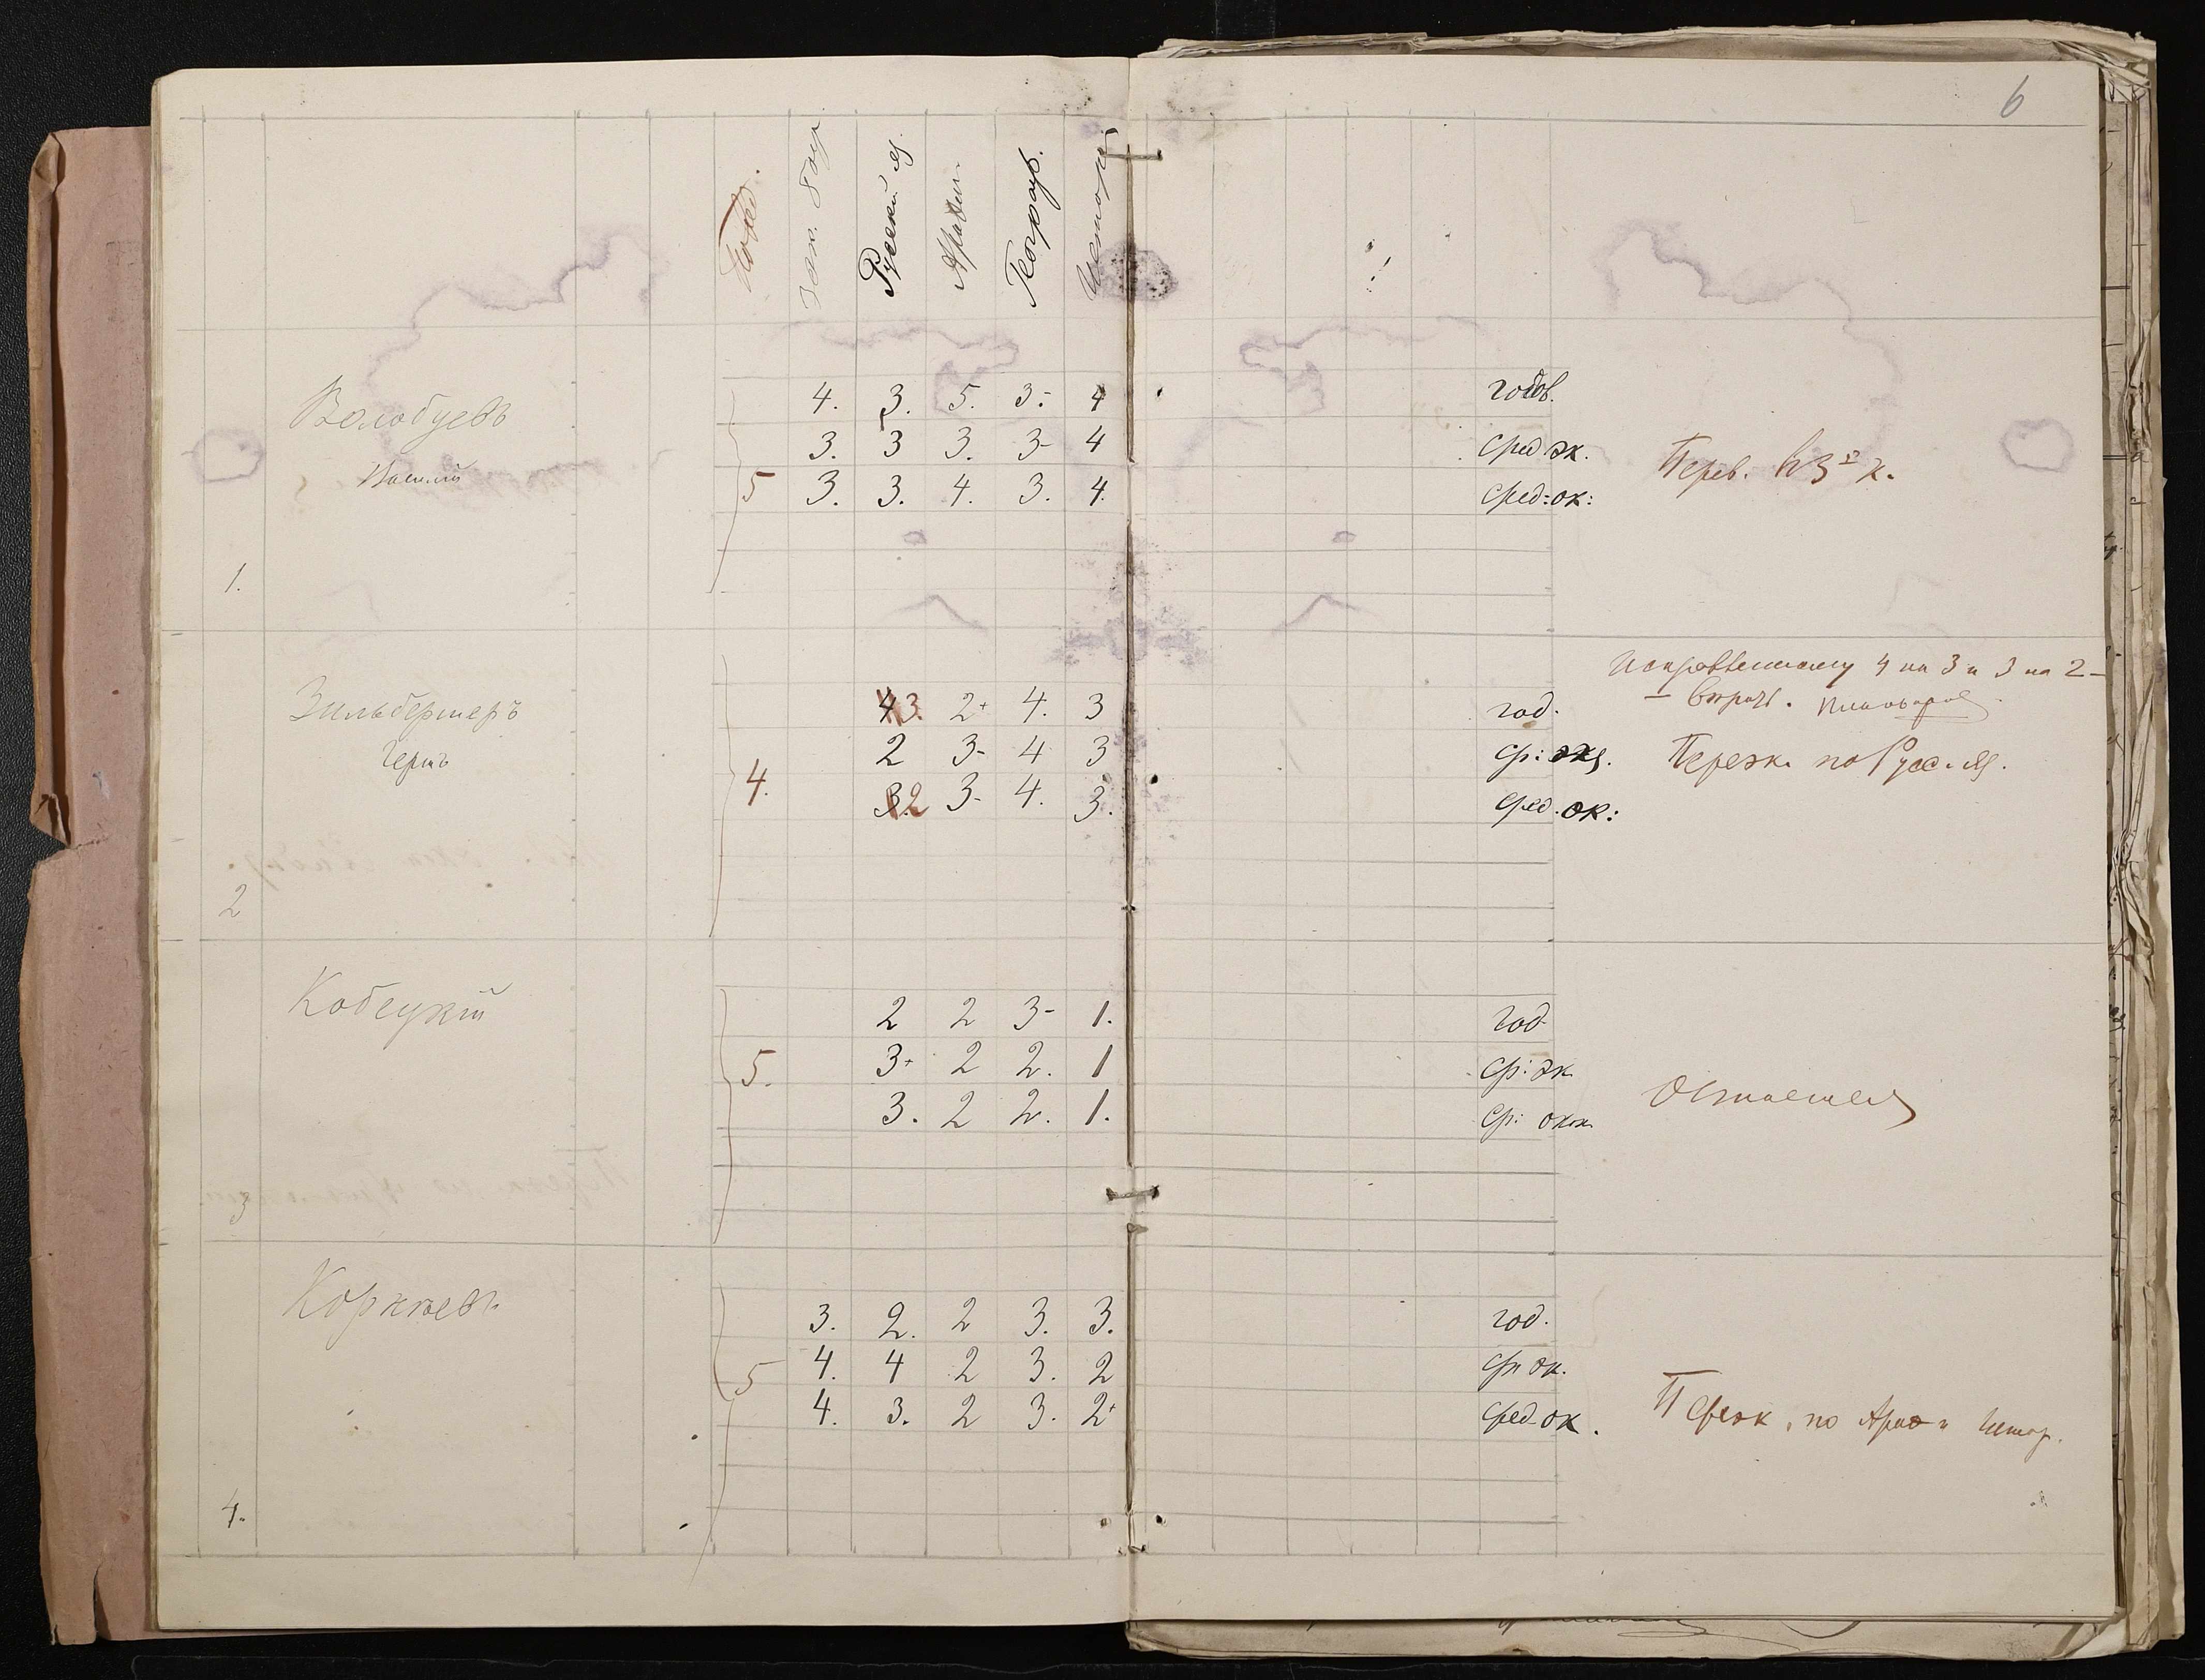 6
Повед.
Зак. Бож
Русскій яз.
Арифм
Географ.
Истор
Волобуевъ
4. 3. 5. 3- 4 годов.
3. 3 3. 3- 4 Сред. эк.
Василій
5 3. 3. 4. 3. 4. Сред: ок:
Перев. въ 3й к.
1.
Исправленному 4 на 3 и 3 на 2-
Зильбермеръ
43. 2+ 4. 3 год.
Герцъ
2 3- 4 3 Ср: экз.
Переэк. по Русс. яз.
4. 3.2 3- 4. 3. Сред. ок:
2
Кобецкій
2 2 3- 1. год
3+ 2 2. 1 Ср: эк
5.
3. 2 2. 1. Ср: окон
Остается
3
Коркѣевъ
3. 2. 2 3. 3. год.
4. 4 2 3. 2 Ср эк.
5
4. 3. 2 3. 2+ Сред ок.
Переэк. по Ариф и Истор.
4.